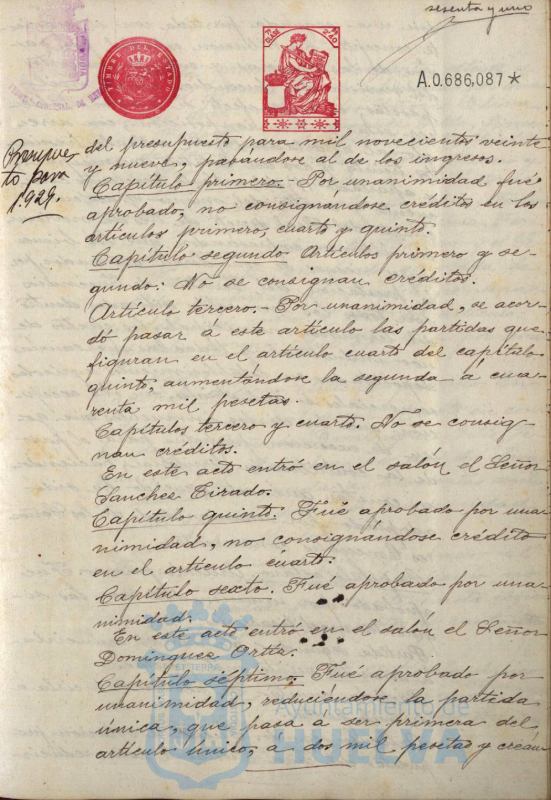 sesenta y uno
TIMBRE DEL ESTADO
A.0.686,087*
Presupues
to para
1.929.
del presupuesto para mil novecientos veinte
y nueve, pasandose al de los ingresos.
Capítulo primero.- Por unanimidad fué
aprobado, no consignandose créditos en los
artículos primero, cuarto y quinto.
Capítulo segundo. Artículos primero y se-
gundo: No se consignan créditos.
Artículo tercero.- Por unanimidad, se acor-
dó pasar á este artículo las partidas que
figuran en el artículo cuarto del capítulo
quinto, aumentándose la segunda á cua-
renta mil pesetas.
Capítulos tercero y cuarto. No se consig-
nan créditos.
En este acto entró en el salón el Señor
Sanchez Tirado.
Capítulo quinto. Fué aprobado por una-
nimidad, no consignándose crédito
en el artículo cuarto.
Capítulo sexto. Fué aprobado por una-
nimidad.
En este acto entró en el salón el Señor
Dominguez Ortiz.
Capítulo séptimo. Fué aprobado por
unanimidad, reduciéndose la partida
única, que pasa a ser primera del
artículo único, a dos mil pesetas y creán
Ayuntamiento de
HUELVA